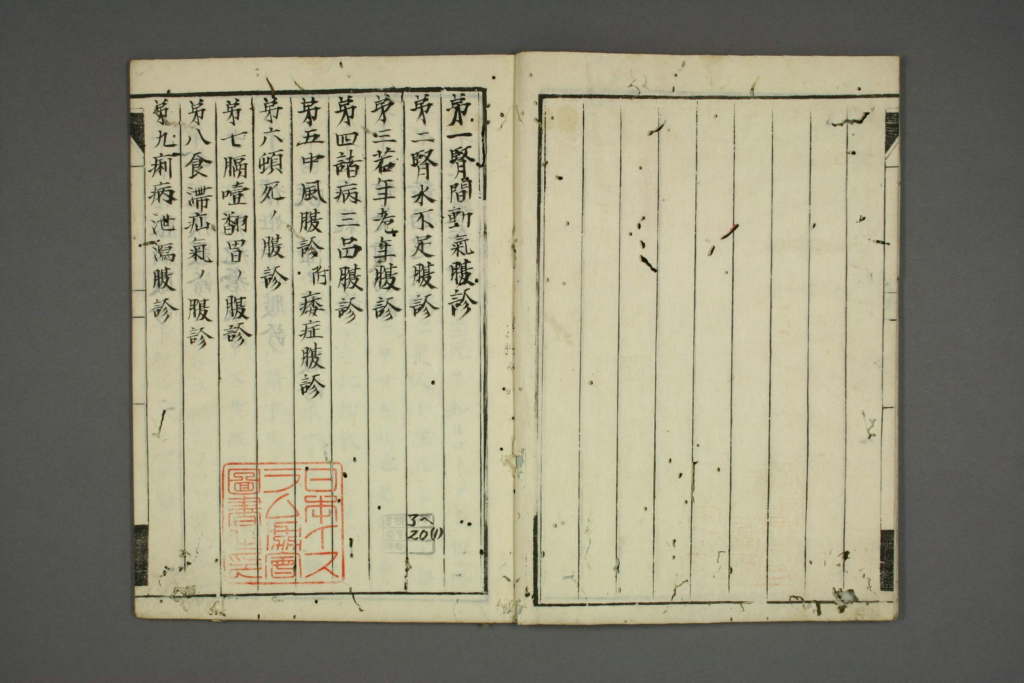 第一腎間動氣腹診
第二腎水不足腹診
第三若年老年腹診
第四諸病三品腹診
第五中風腹診附痿症腹診
第六頓死ノ腹診
第七膈噎翻胃ノ腹診
第八食滯疝氣ノ腹診
第九痢病泄瀉腹診
日本イス
ラム協會
圖書之印
3ヘ
20(1)